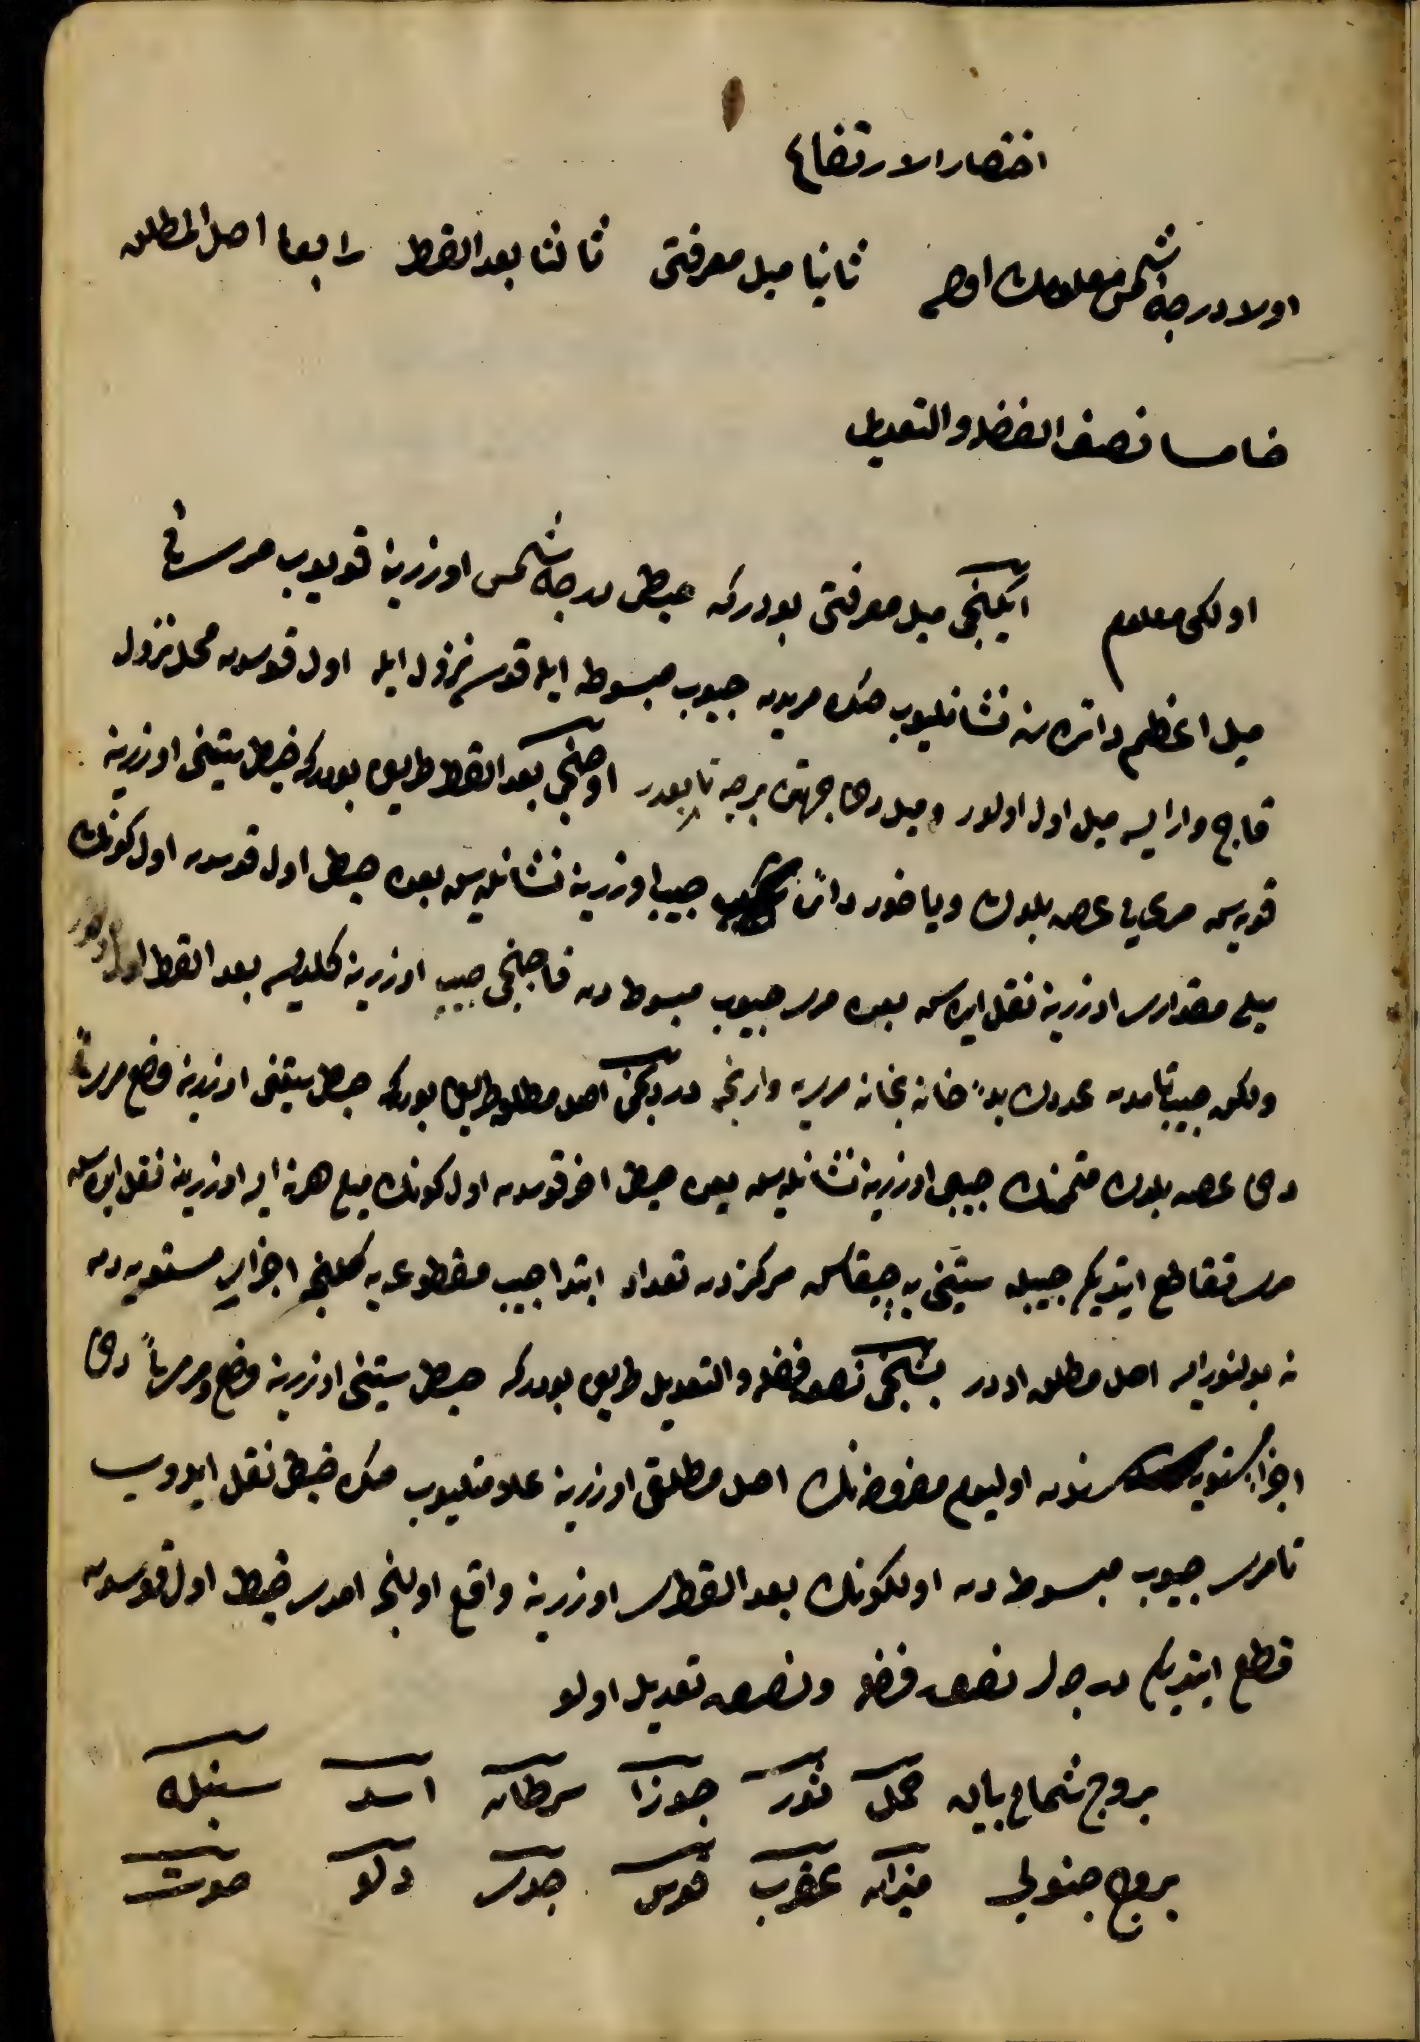 اختصار الارتفاع
اولا درجه شمس معلومك اوله ثانيا ميل معرفتى ثالثا بعد القطر رابعا اصل المطلق
خامسا نصف الفضله والتعديل
اولكى معلوم ايكنجى ميل معرفتى بودركه خيطى درجه شمس اوزرينه قويوب مرى يى
ميل اعظم دائره سنه نشانليوب صكره مريدن جيوب مبسوطه ايله قوسه نزول ايله اول قوسدن محل نزول
قاچ وار ايسه ميل اول اولور وميل دخى جهتده برجه تابعدر اوچنجى بعد القطر طريقى بودركه خيط ستينى اوزرينه
قويه سن مرى يى عرض بلدك وياخود جيب اوزرينه نشانليه سن بعده خيطى اول قوسدن اول كونك
ميلى مقدارى اوزرينه نقل ايده سن بعده مرى جيوب مبسوطدن قاچنجى جيب اوزرينه كلديسه بعد القطر اول
ولكن جيب تامدن عددك بدأ خانه بخانه مريه وارنجه دردنجى اصل مطلق طريقى بودركه خيط ستينى اوزرينه وضع مرى يى
دخى عرض بلدك متممنك جيبى اوزرينه نشانليه سن بعده خيطى اخر قوسدن اول كونك ميلى هر نه ايسه اوزرينه نقل ايده سن
مرى تقاطع ايتديكى جيبله ستينى يه چيقاسن مركزدن تعداد ابتدا جيب مقطوعه يه كلنجه اجزاى مستويه دن
نه بولنور ايسه اصل مطلق اودر بشنجى نصف فضله والتعديل طريقى بودركه خيط ستينى اوزرينه وضع ومريا دخى
اجزا مستويه سندن اوليوم مفروضنك اصل مطلقى اوزرينه علامتليوب صكره خيطى نقل ايدوب
تا مرى جيوب مبسوطدن اولكونك بعد القطرى اوزرينه واقع اولنجه امدى خيط اول قوسدن
قطع ايتديكى درجه لر نصف فضله ونصف تعديل اولو
بروج شمالى بيان حمل ثور جوزا سرطان اسد سنبله
بروج جنوبى ميزان عقرب قوس جدى دلو حوت